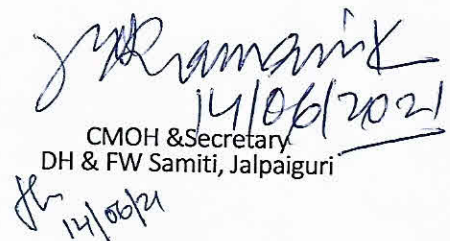 14/06/2021
CMOH &Secretary
DH & FW Samiti, Jalpaiguri
14/06/21